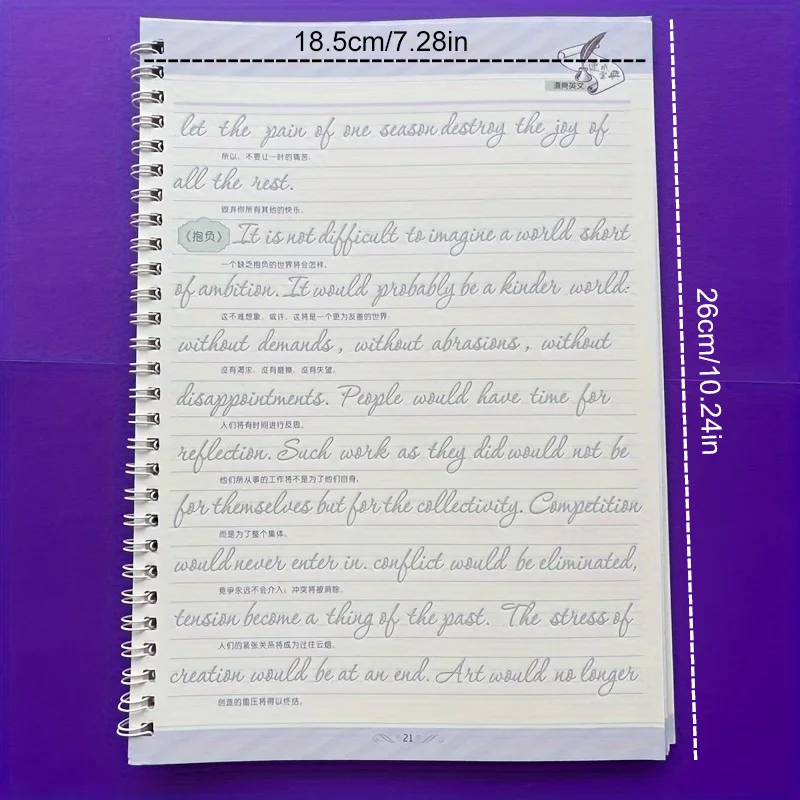 18.5cm/7.28in
速成宝典
漂亮英文
let the pain of one season destroy the joy of
所以，不要让一时的痛苦，
all the rest.
毁弃你所有其他的快乐。
〈抱负〉 It is not difficult to imagine a world short
一个缺乏抱负的世界将会怎样，
of ambition. It would probably be a kinder world:
这不难想象。或许，这将是一个更为友善的世界：
without demands, without abrasions, without
没有渴求，没有磨擦，没有失望。
disappointments. People would have time for
人们将有时间进行反思。
reflection. Such work as they did would not be
他们所从事的工作将不是为了他们自身，
for themselves but for the collectivity. Competition
而是为了整个集体。
would never enter in. conflict would be eliminated,
竞争永远不会介入；冲突将被消除。
tension become a thing of the past. The stress of
人们的紧张关系将成为过往云烟。
creation would be at an end. Art would no longer
创造的重压将得以终结。
21
26cm/10.24in